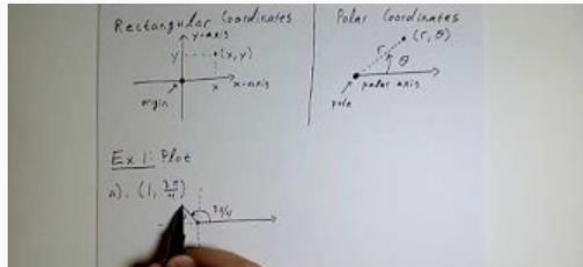 Rectangular Coordinates
y-axis
y
(x, y)
x
x-axis
origin
Polar Coordinates
(r, θ)
r
θ
polar axis
pole
Ex 1: Plot
a). (1, 3π/4)